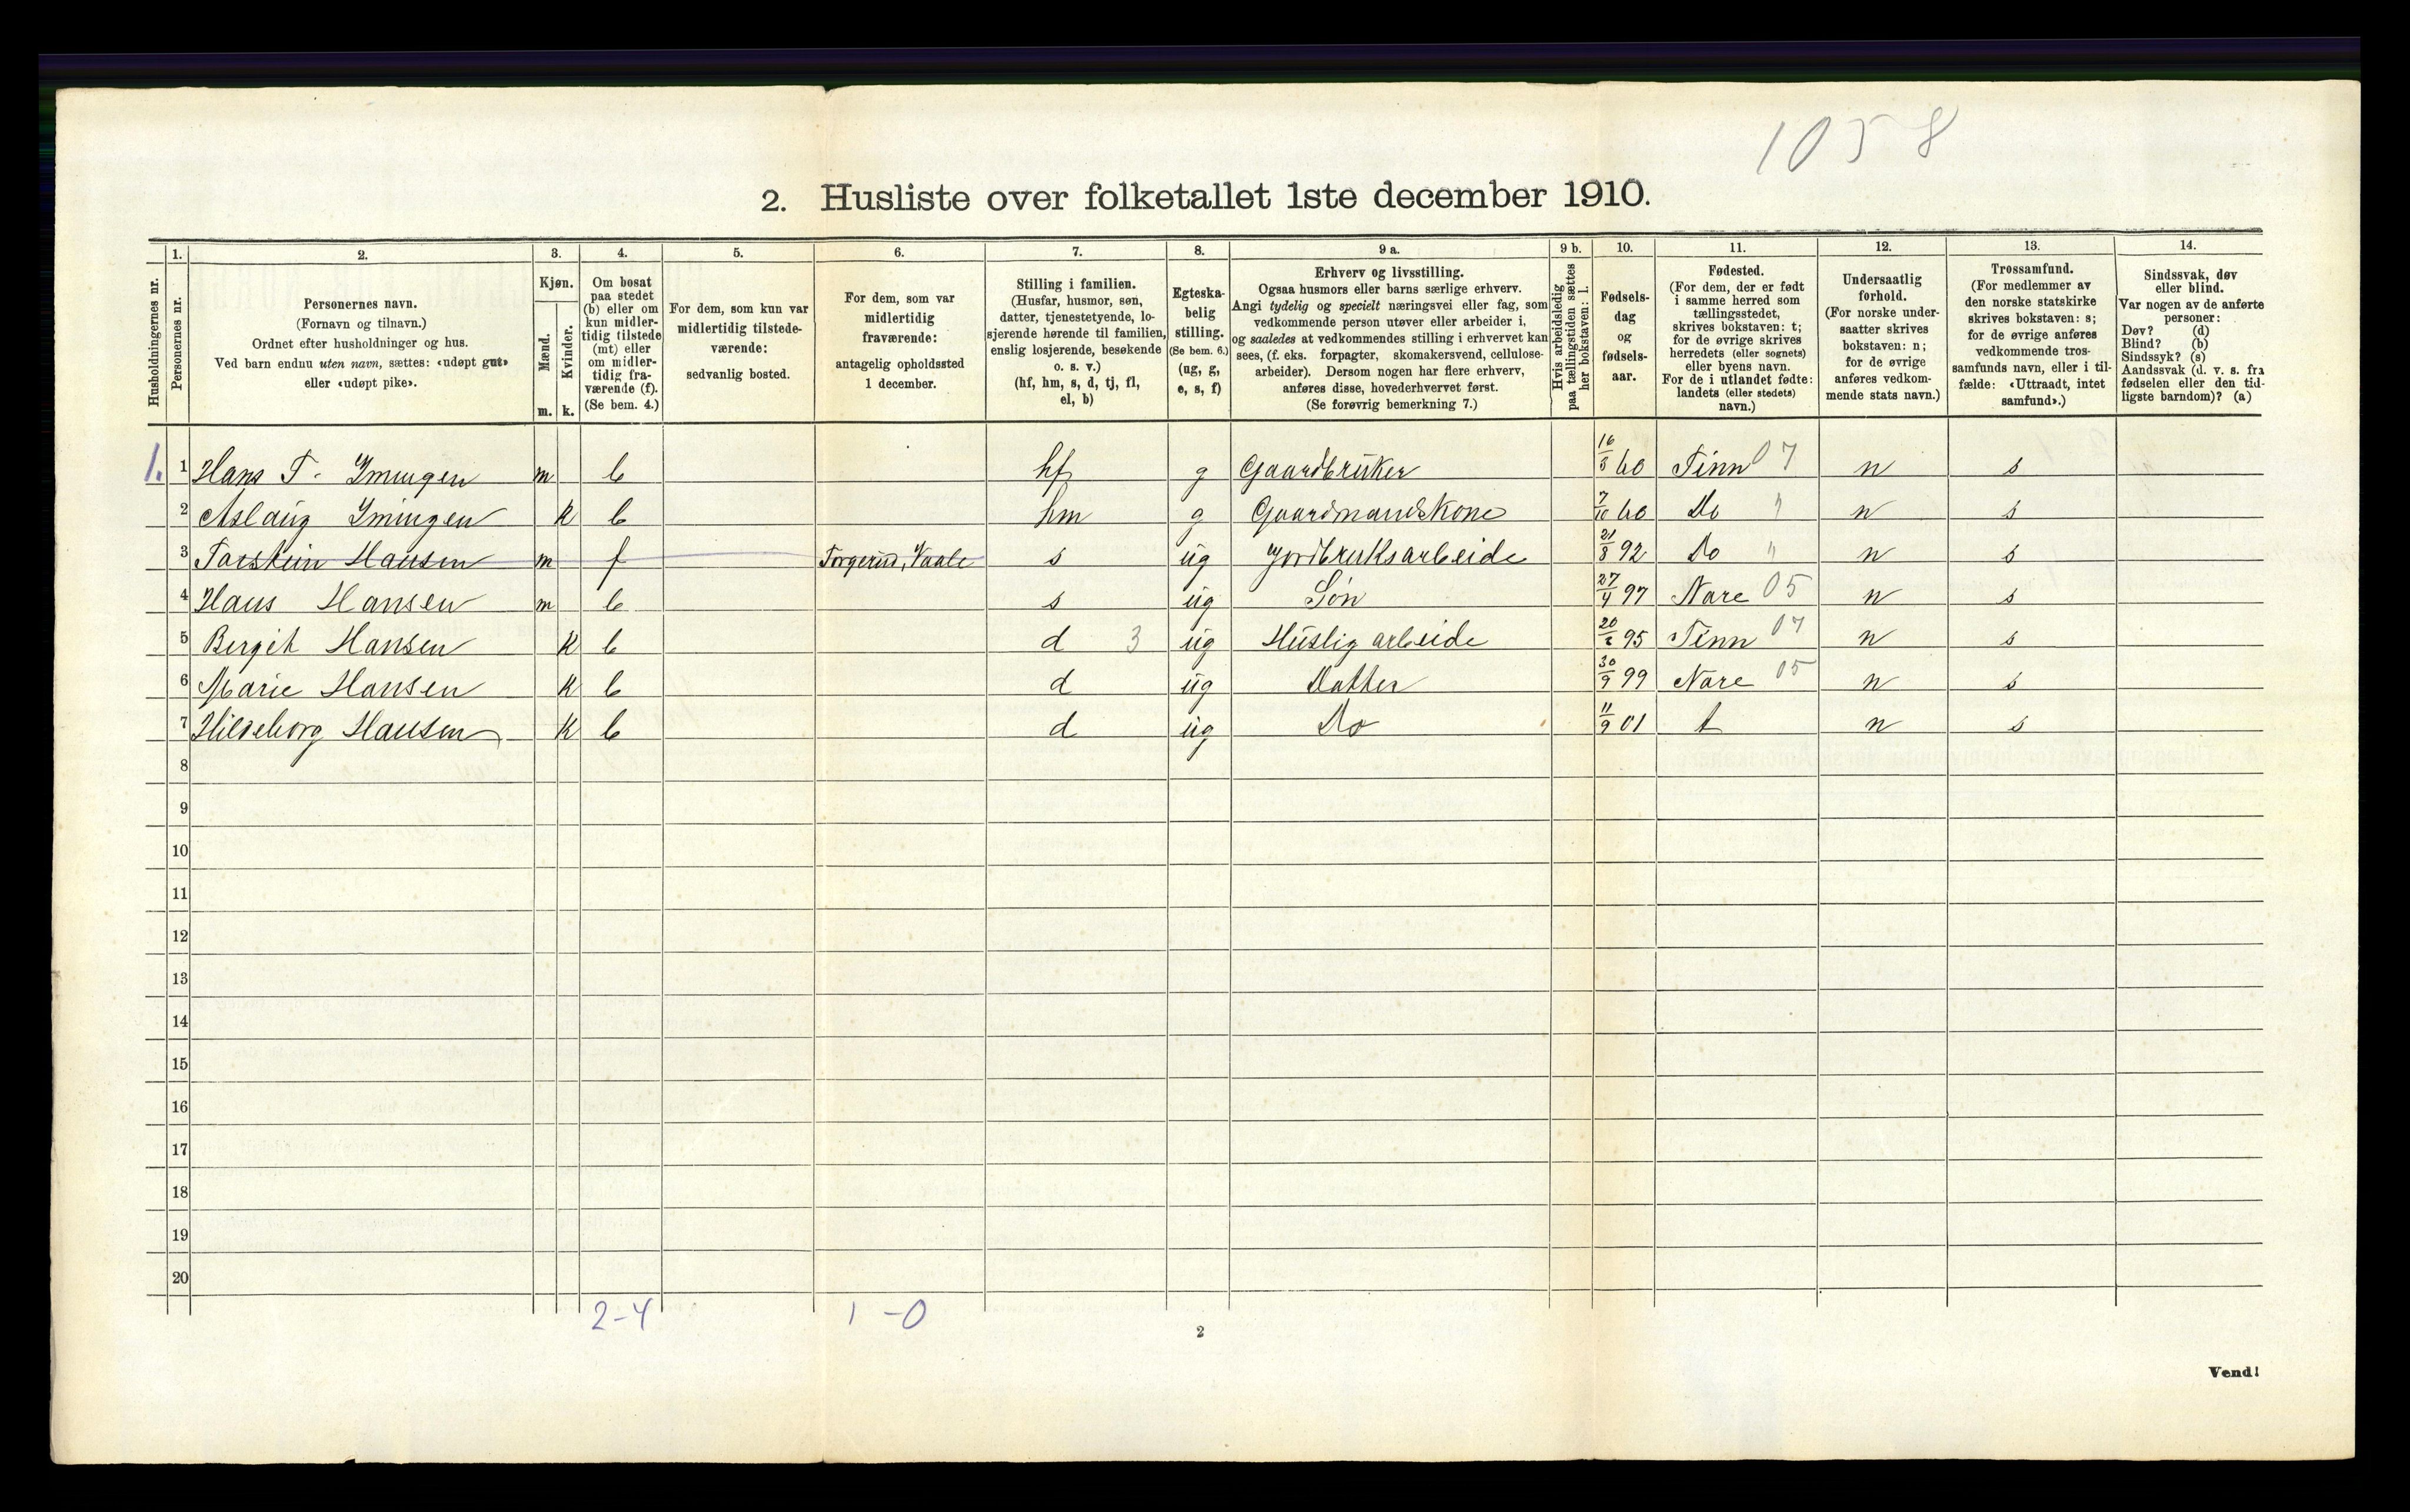 1058
2. Husliste over folketallet 1ste december 1910.
Husholdningernes nr.
1. Personernes nr.
2. Personernes navn.
(Fornavn og tilnavn.)
Ordnet efter husholdninger og hus.
Ved barn endnu uten navn, sættes: «udøpt gut»
eller «udøpt pike».
3. Kjøn.
Mænd. m.
Kvinder. k.
4. Om bosat
paa stedet
(b) eller om
kun midler-
tidig tilstede
(mt) eller
om midler-
tidig fra-
værende (f).
(Se bem. 4.)
5. For dem, som kun var
midlertidig tilstede-
værende:
sedvanlig bosted.
6. For dem, som var
midlertidig
fraværende:
antagelig opholdssted
1 december.
7. Stilling i familien.
(Husfar, husmor, søn,
datter, tjenestetyende, lo-
sjerende hørende til familien,
enslig losjerende, besøkende
o. s. v.)
(hf, hm, s, d, tj, fl,
el, b)
8. Egteska-
belig
stilling.
(Se bem. 6.)
(ug, g,
e, s, f)
9 a. Erhverv og livsstilling.
Ogsaa husmors eller barns særlige erhverv.
Angi tydelig og specielt næringsvei eller fag, som
vedkommende person utøver eller arbeider i,
og saaledes at vedkommendes stilling i erhvervet kan
sees, (f. eks. forpagter, skomakersvend, cellulose-
arbeider). Dersom nogen har flere erhverv,
anføres disse, hovederhvervet først.
(Se forøvrig bemerkning 7.)
9 b. Hvis arbeidsledig
paa tællingstiden sættes
her bokstaven: l.
10. Fødsels-
dag
og
fødsels-
aar.
11. Fødested.
(For dem, der er født
i samme herred som
tællingsstedet,
skrives bokstaven: t;
for de øvrige skrives
herredets (eller sognets)
eller byens navn.
For de i utlandet fødte:
landets (eller stedets)
navn.)
12. Undersaatlig
forhold.
(For norske under-
saatter skrives
bokstaven: n;
for de øvrige
anføres vedkom-
mende stats navn.)
13. Trossamfund.
(For medlemmer av
den norske statskirke
skrives bokstaven: s;
for de øvrige anføres
vedkommende tros-
samfunds navn, eller i til-
fælde: «Uttraadt, intet
samfund».)
14. Sindssvak, døv
eller blind.
Var nogen av de anførte
personer:
Døv? (d)
Blind? (b)
Sindssyk? (s)
Aandssvak (d. v. s. fra
fødselen eller den tid-
ligste barndom)? (a)
1. 1 Hans T. Imingen m b hf g Gaardbruker 16/8 60 Tinn 07 n s
2 Aslaug Imingen k b hm g Gaardmandskone 7/10 60 Do " n s
3 Torstein Hansen m f Torgerud, Vaale s ug Jordbruksarbeide 21/8 92 Do " n s
4 Hans Hansen m b s ug Søn 27/4 97 Nore 05 n s
5 Bergit Hansen k b d 3 ug Huslig arbeide 20/2 95 Tinn 07 n s
6 Marie Hansen k b d ug Datter 30/9 99 Nore 05 n s
7 Hildeborg Hansen k b d ug Do 11/9 01 t n s
8
9
10
11
12
13
14
15
16
17
18
19
20
2-4 1-0
2
Vend!